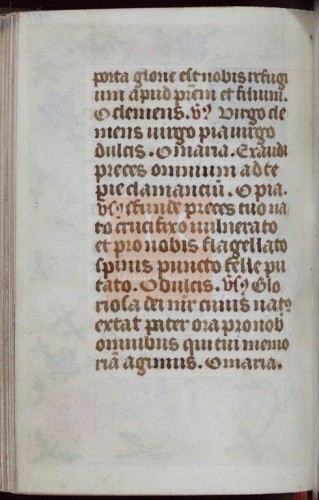 porta glorie est nobis refugi
um apud prem et filium.
O clemens. vs Virgo cle
mens uirgo pia uirgo
dulcis. O maria. Exaudi
preces omnium ad te
pie clamanciu. O pia.
vs ffunde preces tuo na
to crucifixo uulnerato
et pro nobis flagellato
spinis puncto felle pu
tato. O dulcis. vs Glo
riosa dei mr cuius nat9
extat pater ora pro nob
omnibus qui tui memo
ria agimus. O maria.